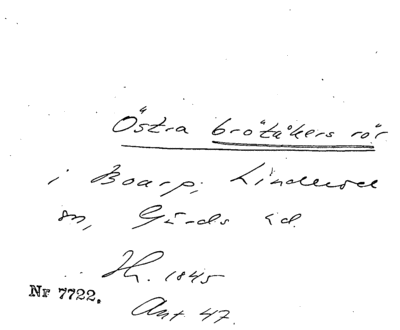 Östra brötåkers rör
i Boarp, Linderöd
sn, Gärds hd.
Hr. 1845
Nr 7722.
Akt 47.